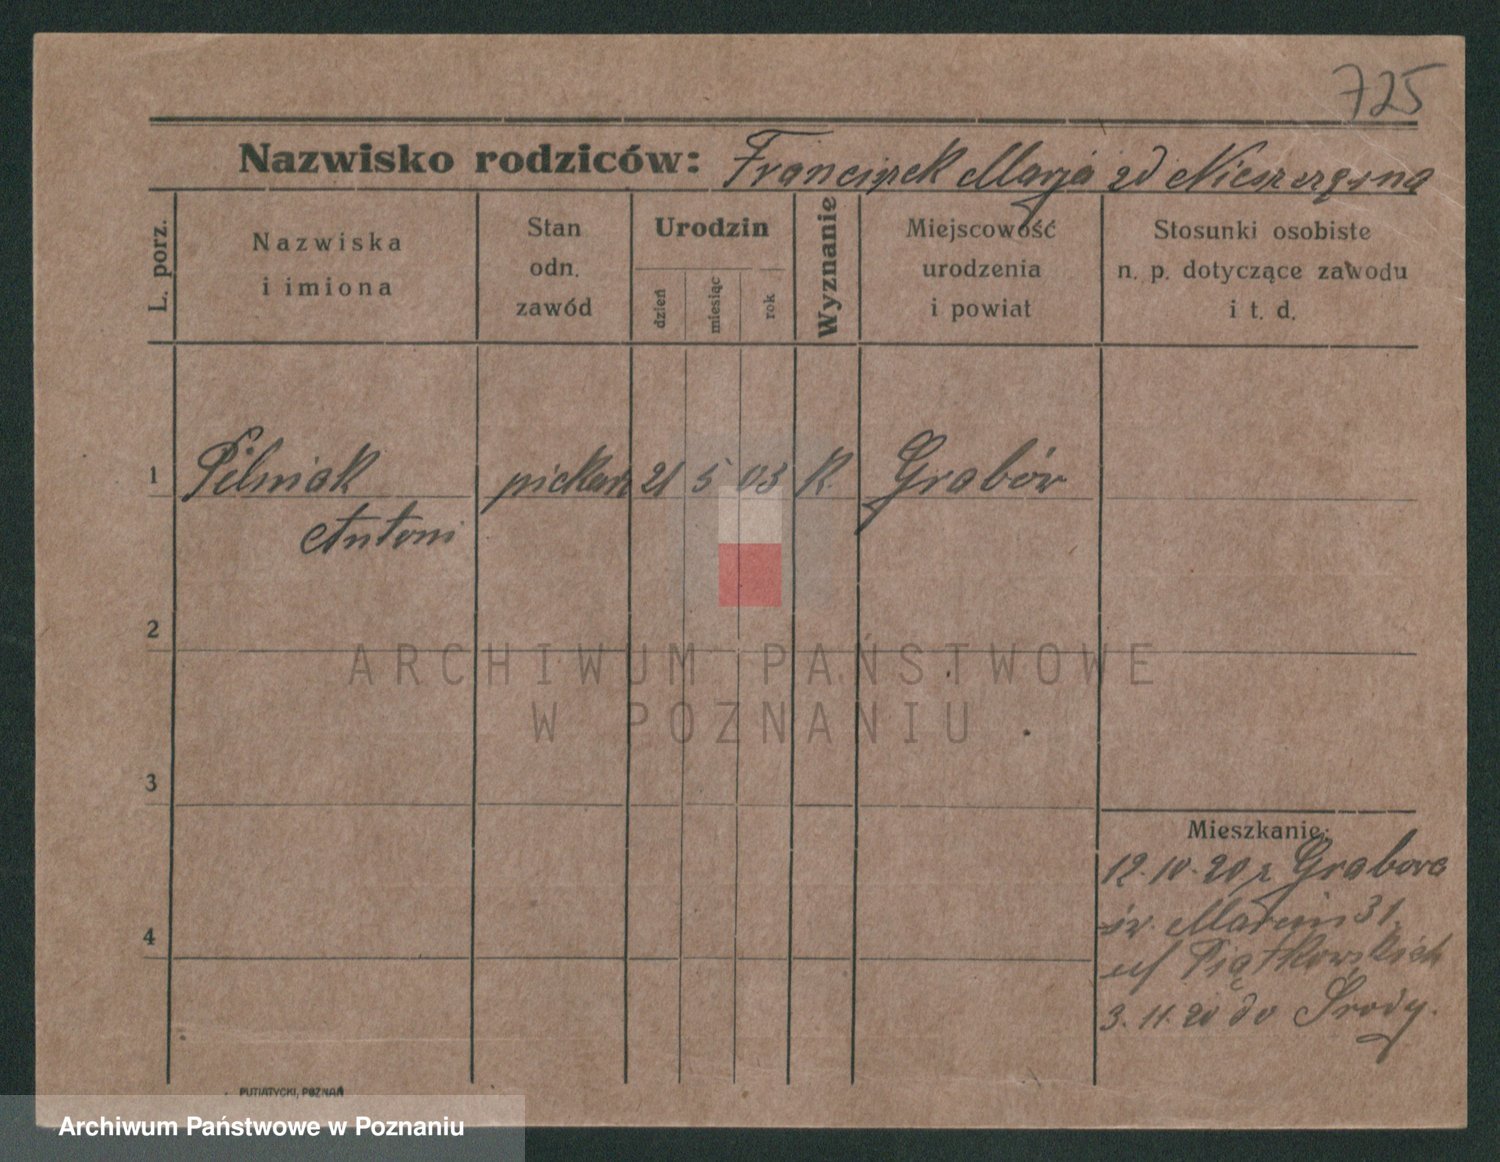 725
Nazwisko rodziców: Franciszek Marja zd
L. porz.
Nazwiska
i imiona
Stan
odn.
zawód
Urodzin
dzień
miesiąc
rok
Wyznanie
Miejscowość
urodzenia
i powiat
Stosunki osobiste
n. p. dotyczące zawodu
i t. d.
1 Pilniak piekarz 21 5 03 R. Grabów
Antoni
2
ARCHIWUM PAŃSTWOWE
W POZNANIU
3
Mieszkanie:
12.10.20 z Grabowa
4
św. Marcin 31
u/ Piątkowskich
3.11.20 do Środy.
PUTIATYCKI, POZNAŃ
Archiwum Państwowe w Poznaniu